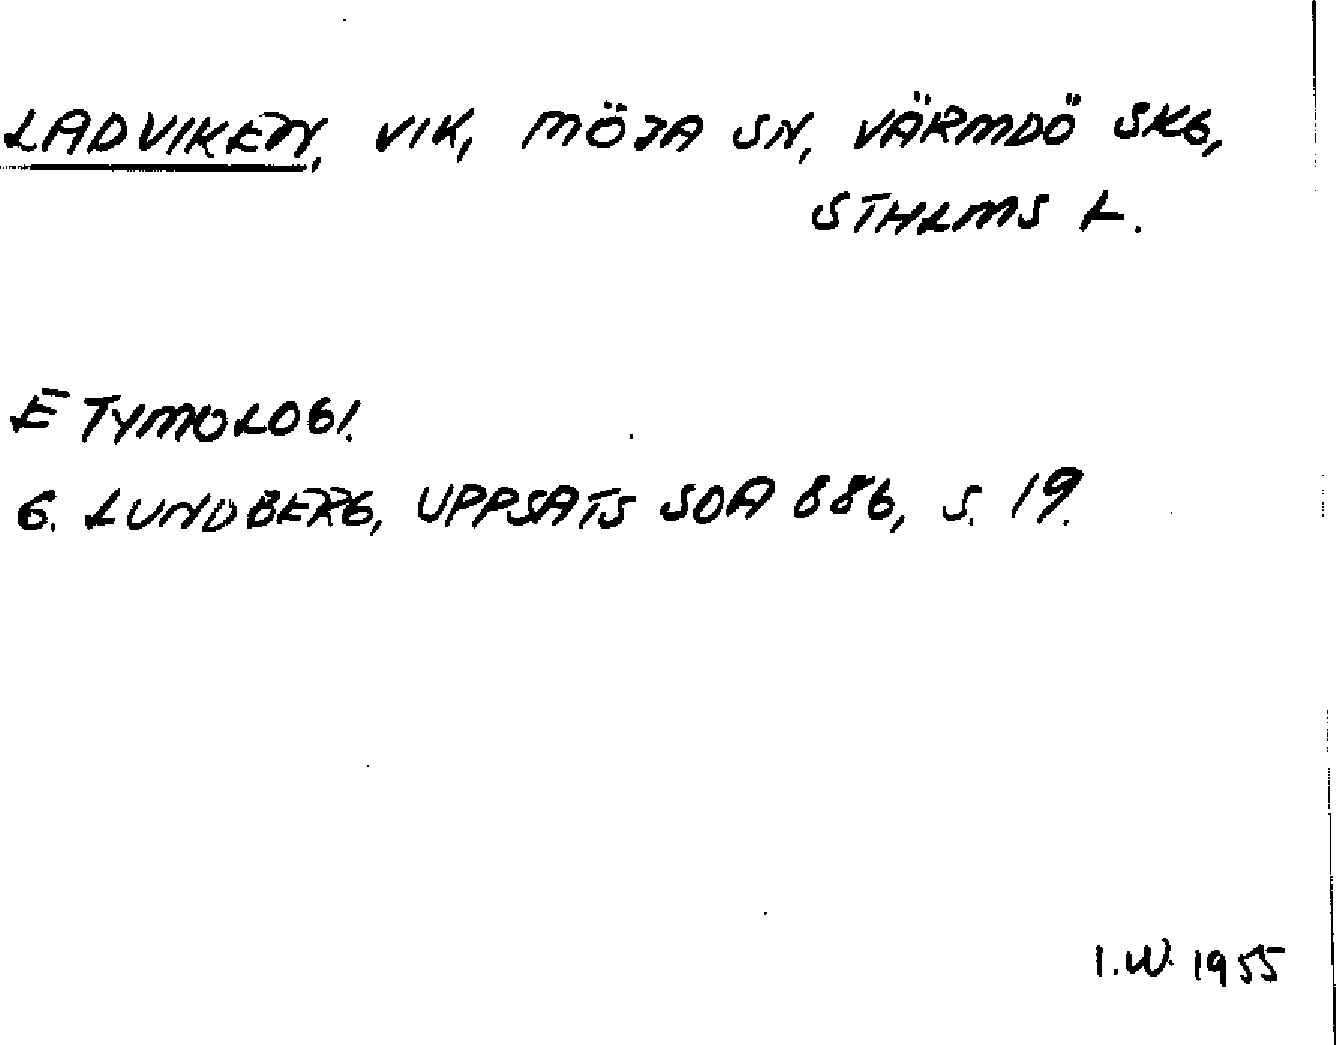 LADVIKEN, VIK, MÖJA SN, VÄRMDÖ SKG,
STHLMS L.
ETYMOLOGI.
G. LUNDBERG, UPPSATS SOA 886, S. 19.
I.W. 1955